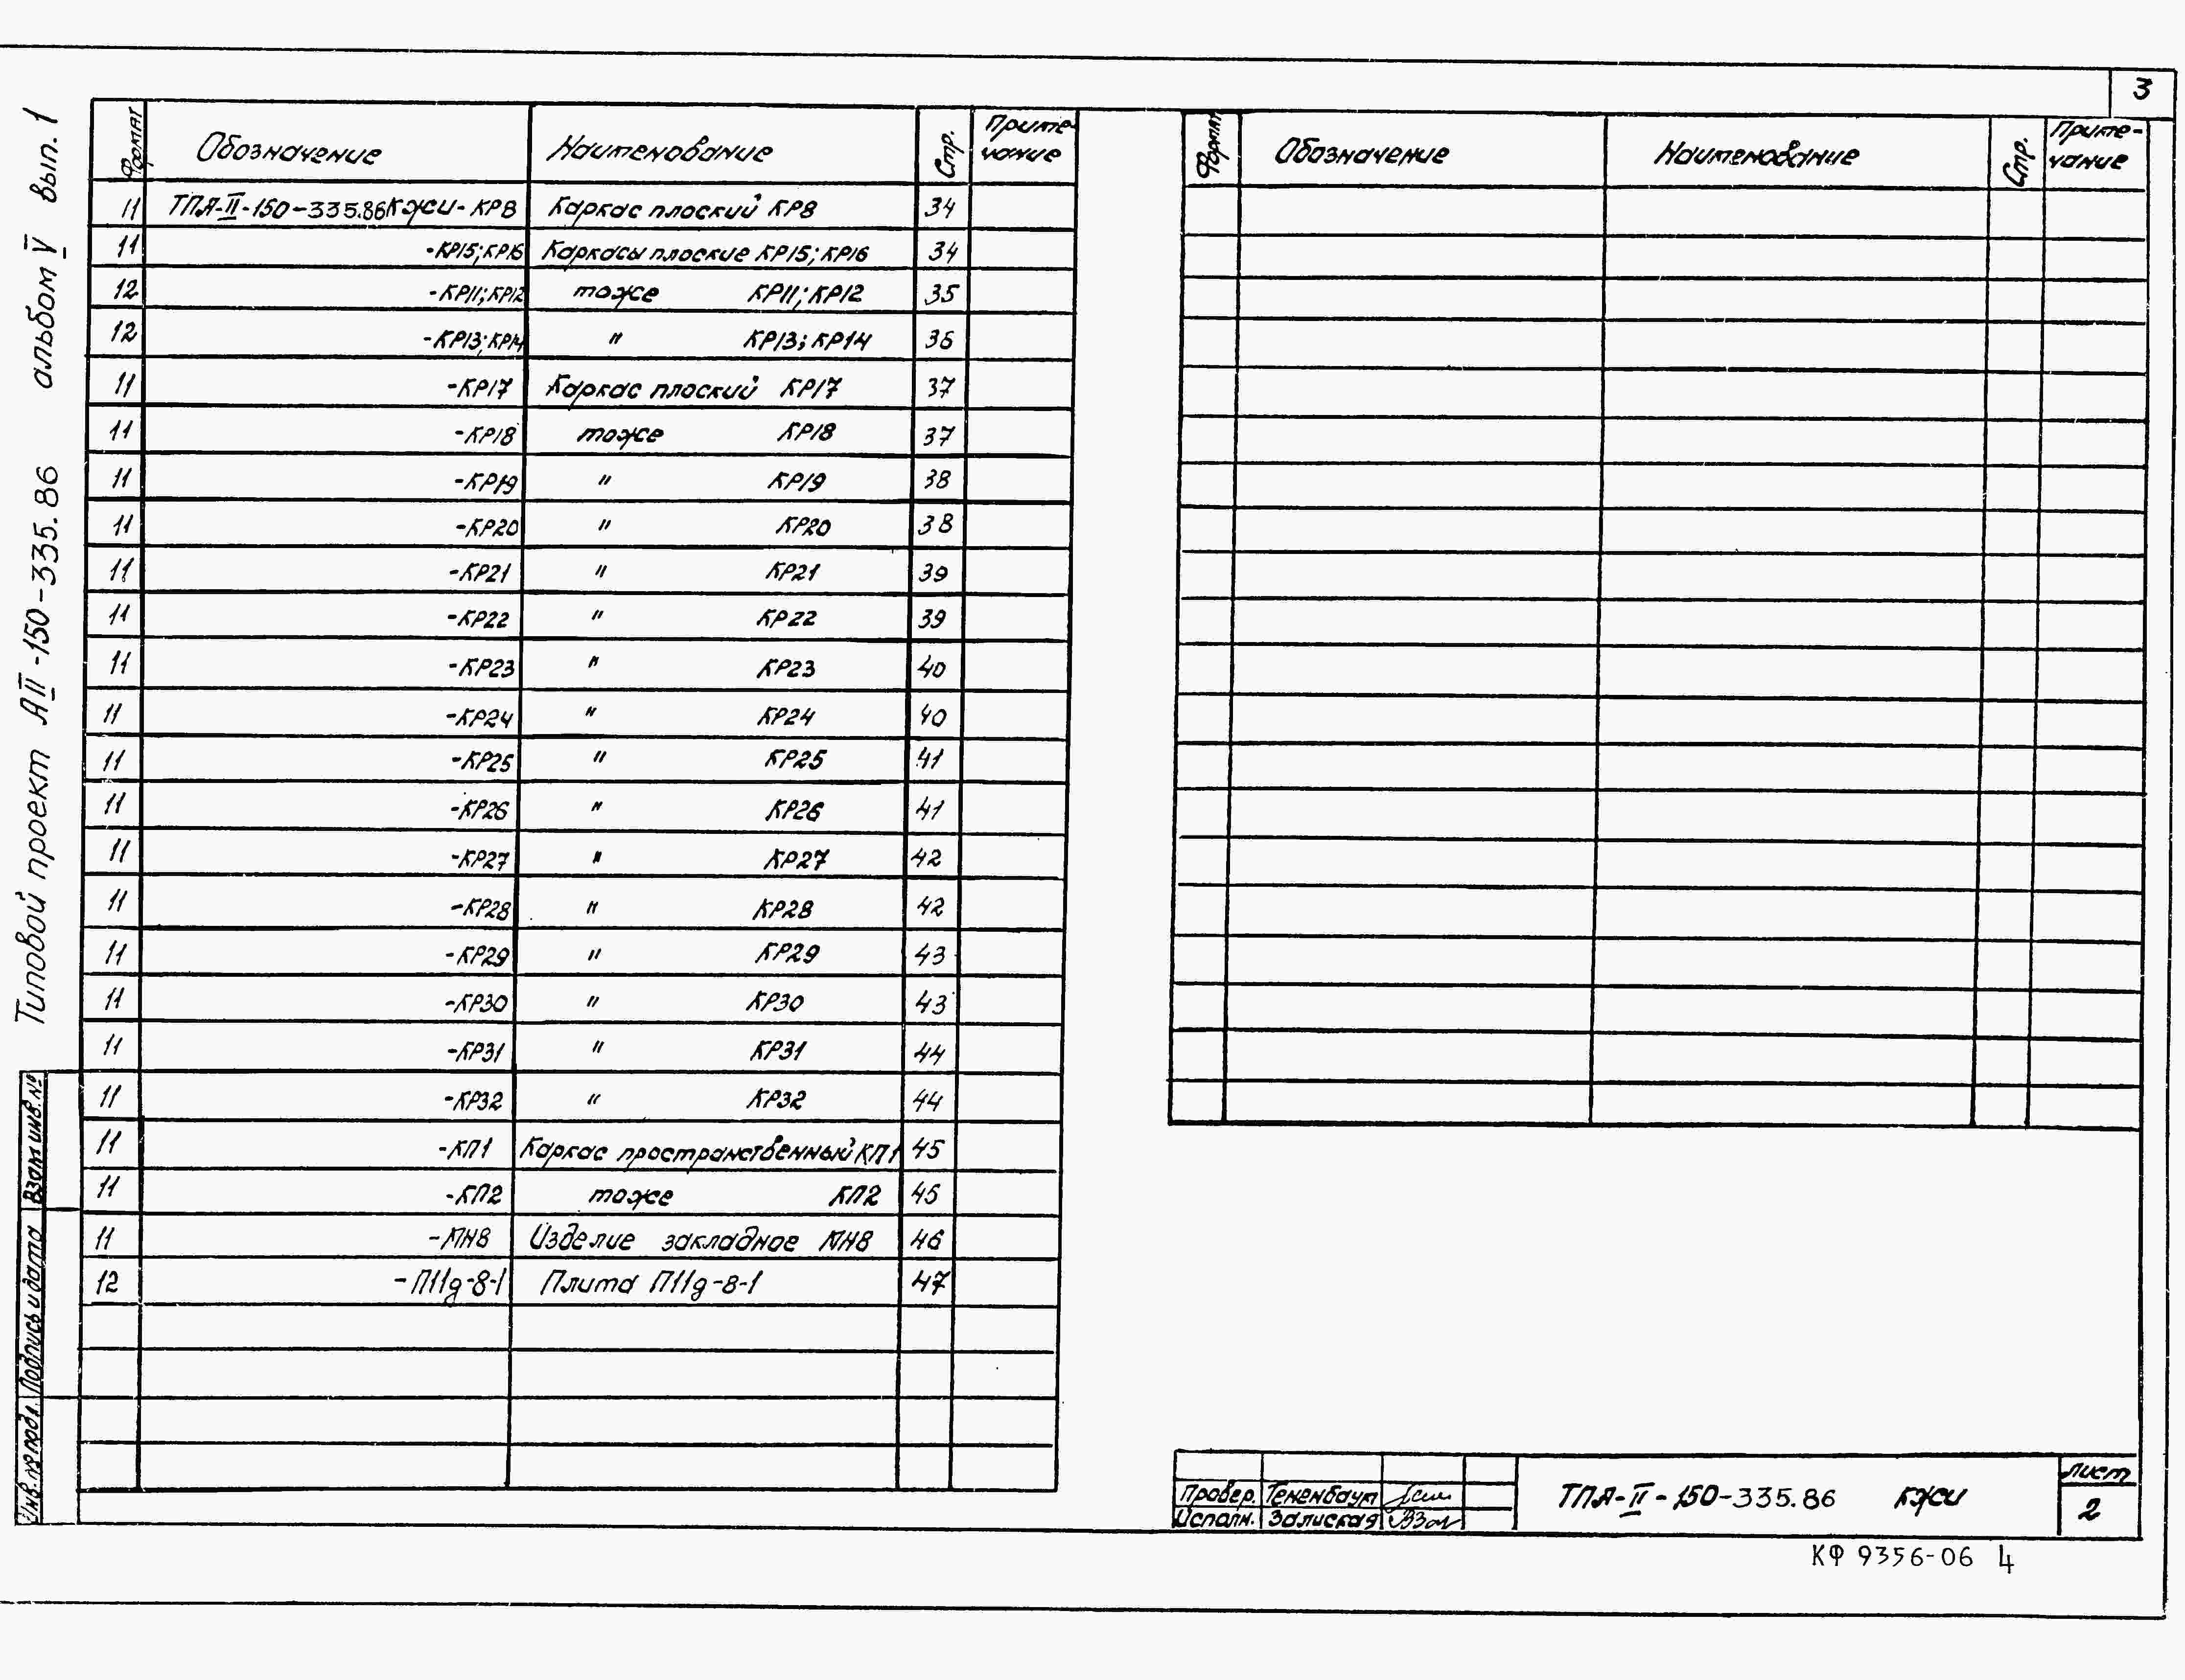 3
Типовой проект АII-150-335.86 альбом V вып. 1
Формат Обозначение Наименование Стр. Приме-чание
11 ТПА-II-150-335.86 КЖИ-КР8 Каркас плоский КР8 34
11 -КР15; КР16 Каркасы плоские КР15; КР16 34
12 -КР11; КР12 тоже КР11; КР12 35
12 -КР13; КР14 " КР13; КР14 36
11 -КР17 Каркас плоский КР17 37
11 -КР18 тоже КР18 37
11 -КР19 " КР19 38
11 -КР20 " КР20 38
11 -КР21 " КР21 39
11 -КР22 " КР22 39
11 -КР23 " КР23 40
11 -КР24 " КР24 40
11 -КР25 " КР25 41
11 -КР26 " КР26 41
11 -КР27 " КР27 42
11 -КР28 " КР28 42
11 -КР29 " КР29 43
11 -КР30 " КР30 43
11 -КР31 " КР31 44
11 -КР32 " КР32 44
11 -КП1 Каркас пространственный КП1 45
11 -КП2 тоже КП2 45
11 -МН8 Изделие закладное МН8 46
12 -П11д-8-1 Плита П11д-8-1 47
Формат Обозначение Наименование Стр. Приме-чание
Взам инв. №
Подпись и дата
Инв. № подл.
Провер. Тененбаум
Исполн. Залиская
ТПА-II-150-335.86 КЖИ
Лист
2
КФ 9356-06 4